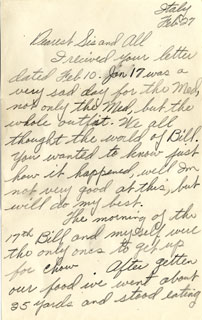 Italy
Feb 27
Dearest Sis and All
I recived your letter
dated Feb 10. Jan 17 was a
very sad day for the Med,
not only the Med, but the
whole outfit. We all
thought the world of Bill.
You wanted to know just
how it happened, well Im
not very good at this, but
will do my best.
The morning of the
17th Bill and my self were
the only ones to get up
for chow. After getten
our food we went about
25 yards and stood eating